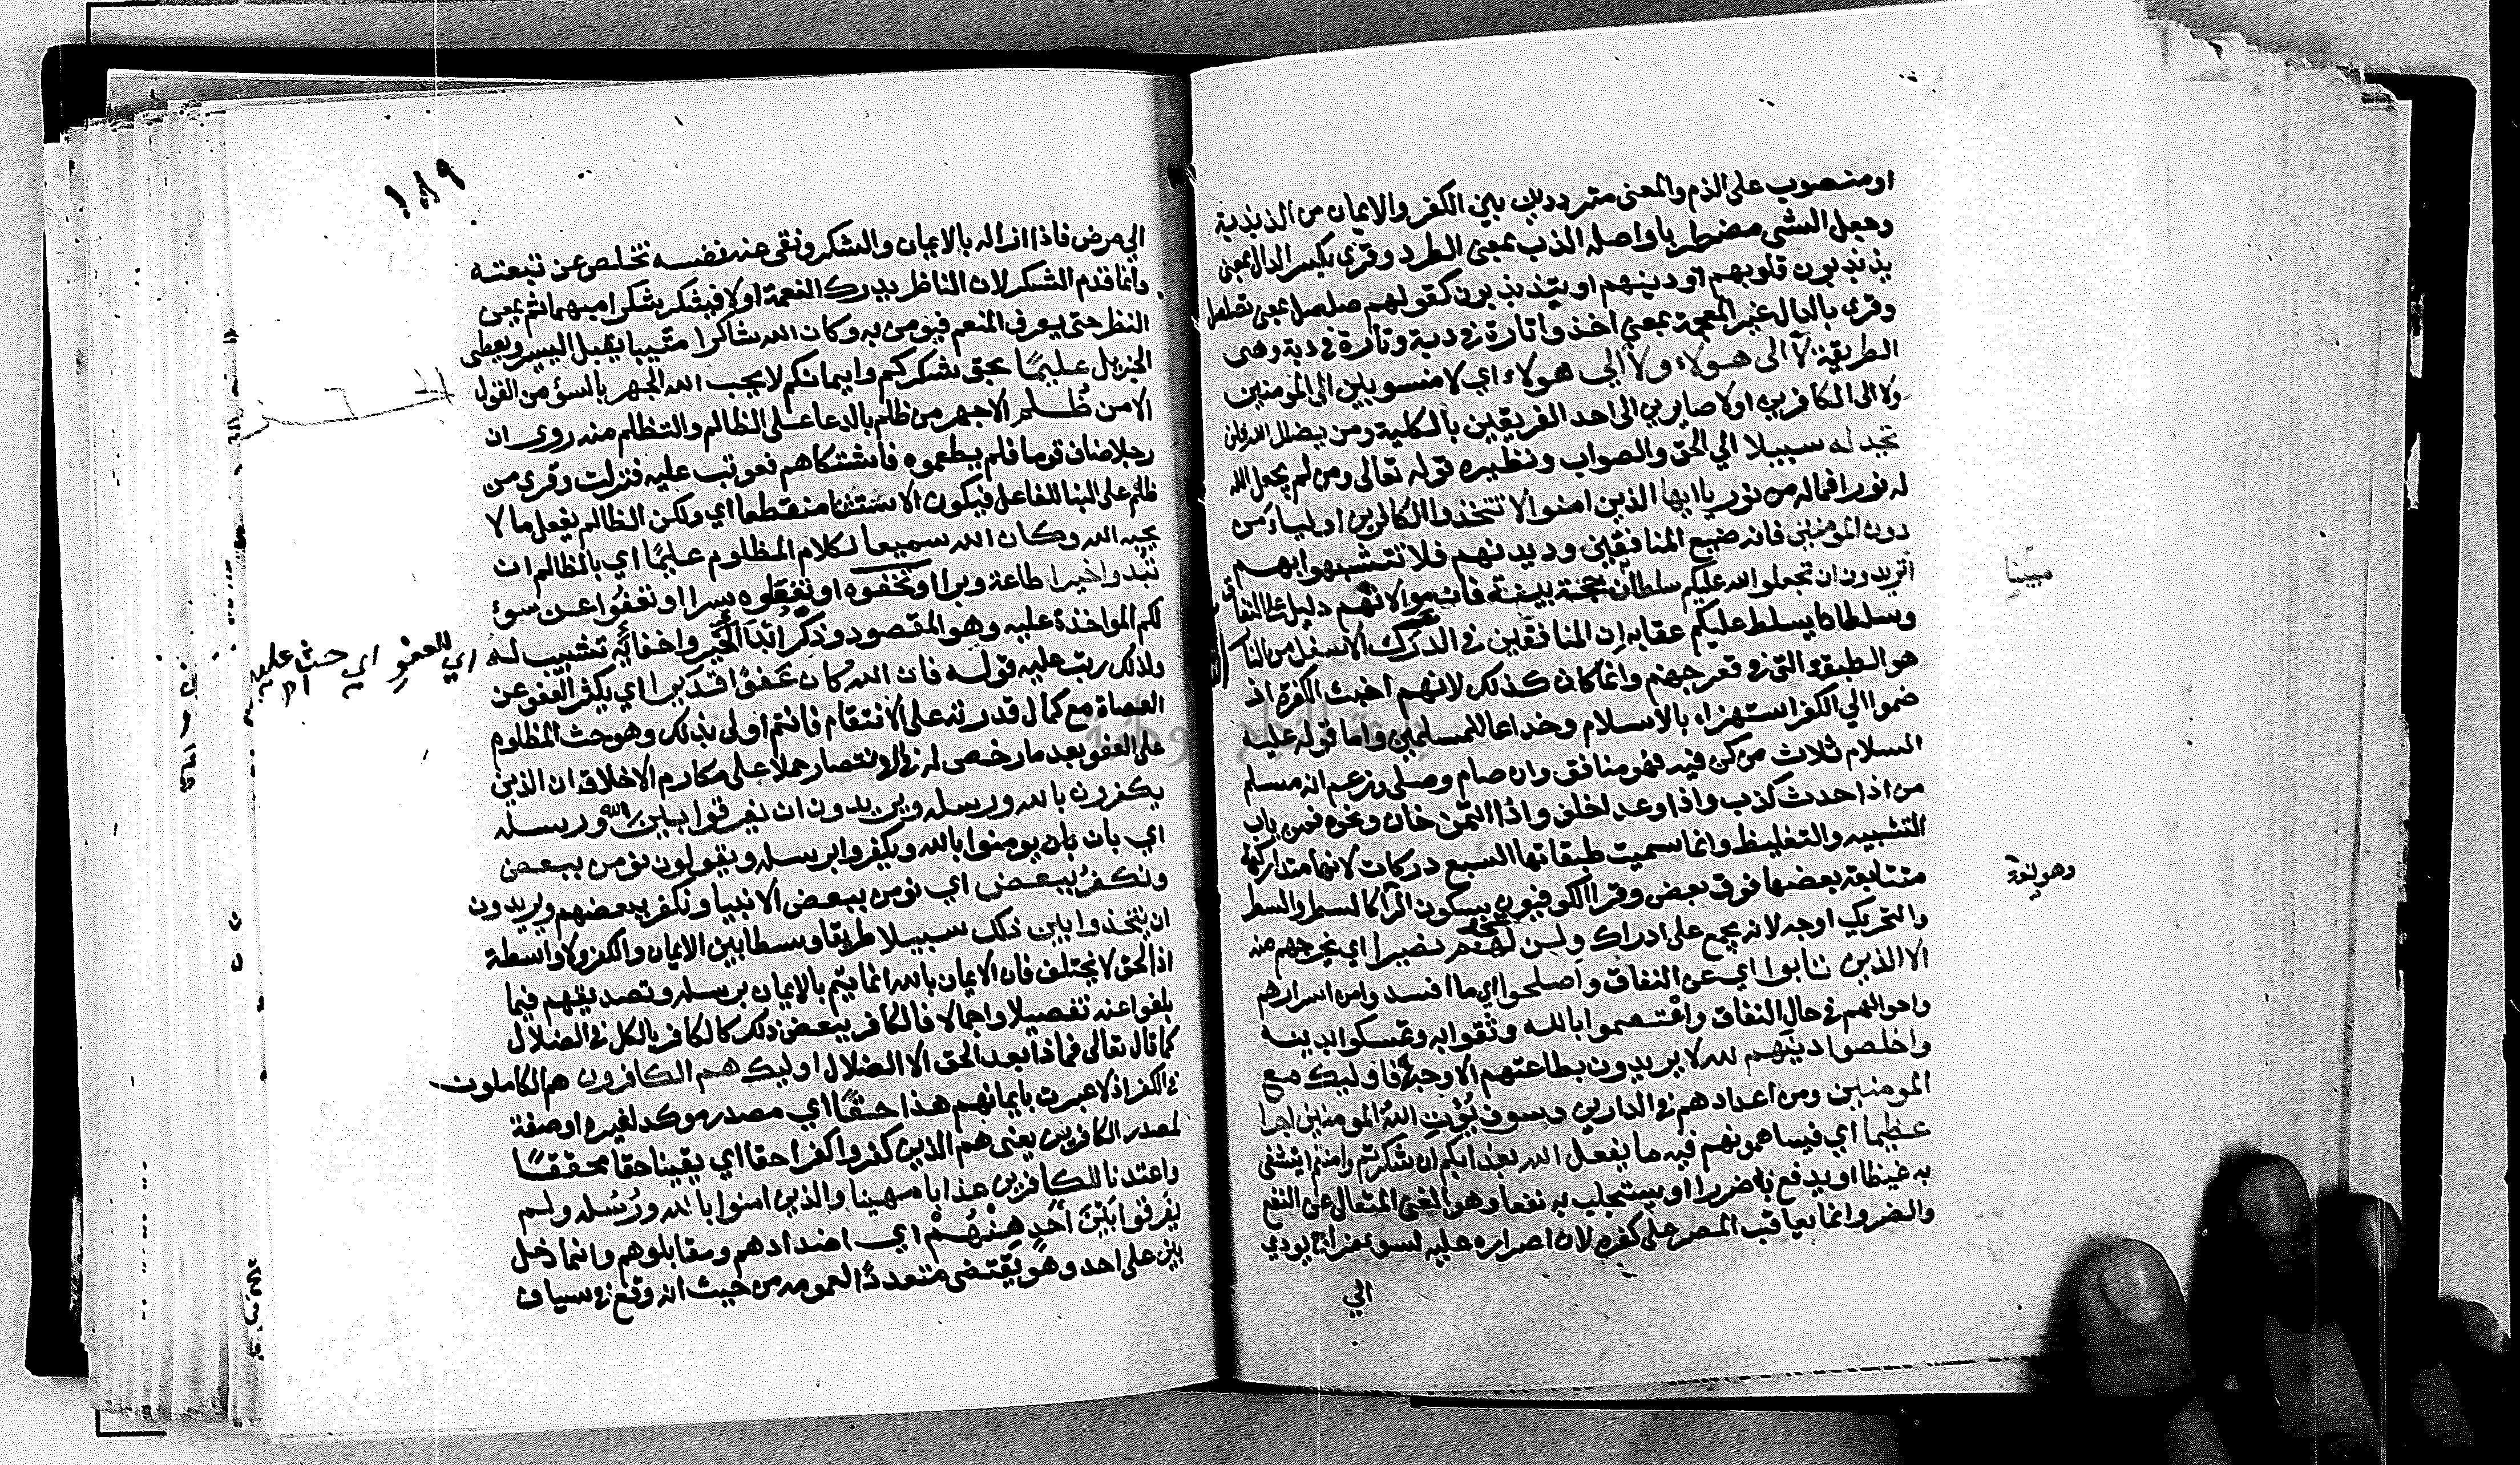 او منصوب على الذم والمعنى مترددين بين الكفر والايمان من الذبذبة
وهو جعل الشى مضطربا واصله الذب بمعنى الطرد وقرى بكسر الذال بمعنى
يذبذبون قلوبهم او دينهم او يتذبذبون كقولهم صلصل بمعنى تصلصل
وقرى بالدال غير المعجمة بمعنى اخذوا تارة في دبة وتارة في دبة وهى
الطريقة لا الى هولاء ولا الى هولاء اي لا منسوبين الى المومنين
ولا الى الكافرين اولا صايرين الى احد الفريقين بالكلية ومن يضلل الله فلن
تجد له سبيلا الي الحق والصواب ونظيره قوله تعالى ومن لم يجعل الله
له نورا فماله من نور ياايها الذين امنوا لا تتخذوا الكافرين اولياء من
دون المومنين فانه ضيع المنافقين وديدنهم فلا تتشبهوا بهم
اتريدون ان تجعلوا لله عليكم سلطانا مبينا حجة بينة فان موالاتهم دليل على النفاق
وسلطانا يسلط عليكم عقابه ان المنافقين في الدرك الاسفل من النار
هو الطبقة التي في قعر جهنم وانما كان كذلك لانهم اخبث الكفرة اذ
ضموا الي الكفر استهزاء بالاسلام وخداعا للمسلمين واما قوله عليه
السلام ثلاث من كن فيه فهو منافق وان صام وصلى وزعم انه مسلم
من اذا حدث كذب واذا وعد اخلف واذا ائتمن خان ونحوه فمن باب
التشبيه والتغليظ وانما سميت طبقاتها السبع دركات لانها متداركة
متتابعة بعضها فوق بعض وقرا الكوفيون بسكون الرا كالسطر والسطر
والتحريك اوجه لانه يجمع على ادراك ولن تجد لهم نصيرا اي يخرجهم منه
الا الذين تابوا اي عن النفاق واصلحوا اي ما افسد وامن اسرارهم
واحوالهم في حال النفاق واعتصموا بالله وثقوا به وتمسكوا بدينه
واخلصوا دينهم لله لا يريدون بطاعتهم الا وجهه فاوليك مع
المومنين ومن اعدادهم في الدارين وسوف يؤت الله المومنين اجرا
عظيما اي فيساهمونهم فيه ما يفعل الله بعذابكم ان شكرتم وامنتم ايتشفى
به غيظا او يدفع به ضررا او يستجلب به نفعا وهو الغنى المتعال عن النفع
والضر وانما يعاقب المصر على كفره لان اصراره عليه لسوء مزاج يودي
الي
مبينا
وهو لغة
١٨٩
الي مرض فاذا ازاله بالايمان والشكر ونقى عنه نفسه تخلص عن تبعته
وانما قدم الشكر لان الناظر يدرك النعمة اولا فيشكر شكرا مبهما ثم يمعن
النظر حتى يعرف المنعم فيومن به وكان الله شاكرا مثيبا يقبل اليسير ويعطى
الجزيل عليما بحق شكركم وايمانكم لا يحب الله الجهر بالسؤ من القول
الا من ظلم الا جهر من ظلم بالدعا على الظالم والتظلم منه روى ان
رجلا ضاف قوما فلم يطعموه فاشتكاهم فعوتب عليه فنزلت وقرى من
ظلم على البنا للفاعل فيكون الاستثنا منقطعا اي ولكن الظالم يفعل ما لا
يحبه الله وكان الله سميعا لكلام المظلوم عليما اي بالظالم ان
تبدوا خيرا طاعة وبرا او تخفوه او تفعلوه سرا او تعفوا عن سوء
لكم المواخذة عليه وهو المقصود وذكر ابدا الخير واخفائه تشبيب له
ولذلك رتب عليه قوله فان الله كان عفوا قديرا اي يكثر العفو عن
العصاة مع كمال قدرته على الانتقام فانتم اولى بذلك وهو حث المظلوم
على العفو بعد ما رخص له في الانتصار حملا على مكارم الاخلاق ان الذين
يكفرون بالله ورسله ويريدون ان يفرقوا بين الله ورسله
اي بان بان يومنوا بالله ويكفروا برسله ويقولون نؤمن ببعض
ونكفر ببعض اي نومن ببعض الانبيا ونكفر ببعضهم ويريدون
ان يتخذوا بين ذلك سبيلا طريقا وسطا بين الايمان والكفر ولا واسطة
اذ الحق لا يختلف فان الايمان بالله انما يتم بالايمان برسله وتصديقهم فيما
بلغوا عنه تفصيلا واجمالا فالكافر ببعض ذلك كالكافر بالكل في الضلال
كما قال تعالى فماذا بعد الحق الا الضلال اوليك هم الكافرون هم الكاملون
في الكفر اذ لا عبرت بايمانهم هذا حقا اي مصدر موكد لغيره او صفة
لمصدر الكافرين يعنى هم الذين كفروا كفرا حقا اي يقينا حقا محققا
واعتدنا للكافرين عذابا مهينا والذين امنوا بالله ورسله ولم
يفرقوا بين احد منهم اي اضدادهم ومقابلوهم وانما دخل
بين على احد وهو يقتضى متعدد العمومه من حيث انه وقع في سياق
اي للعفو اي حث عليه اه